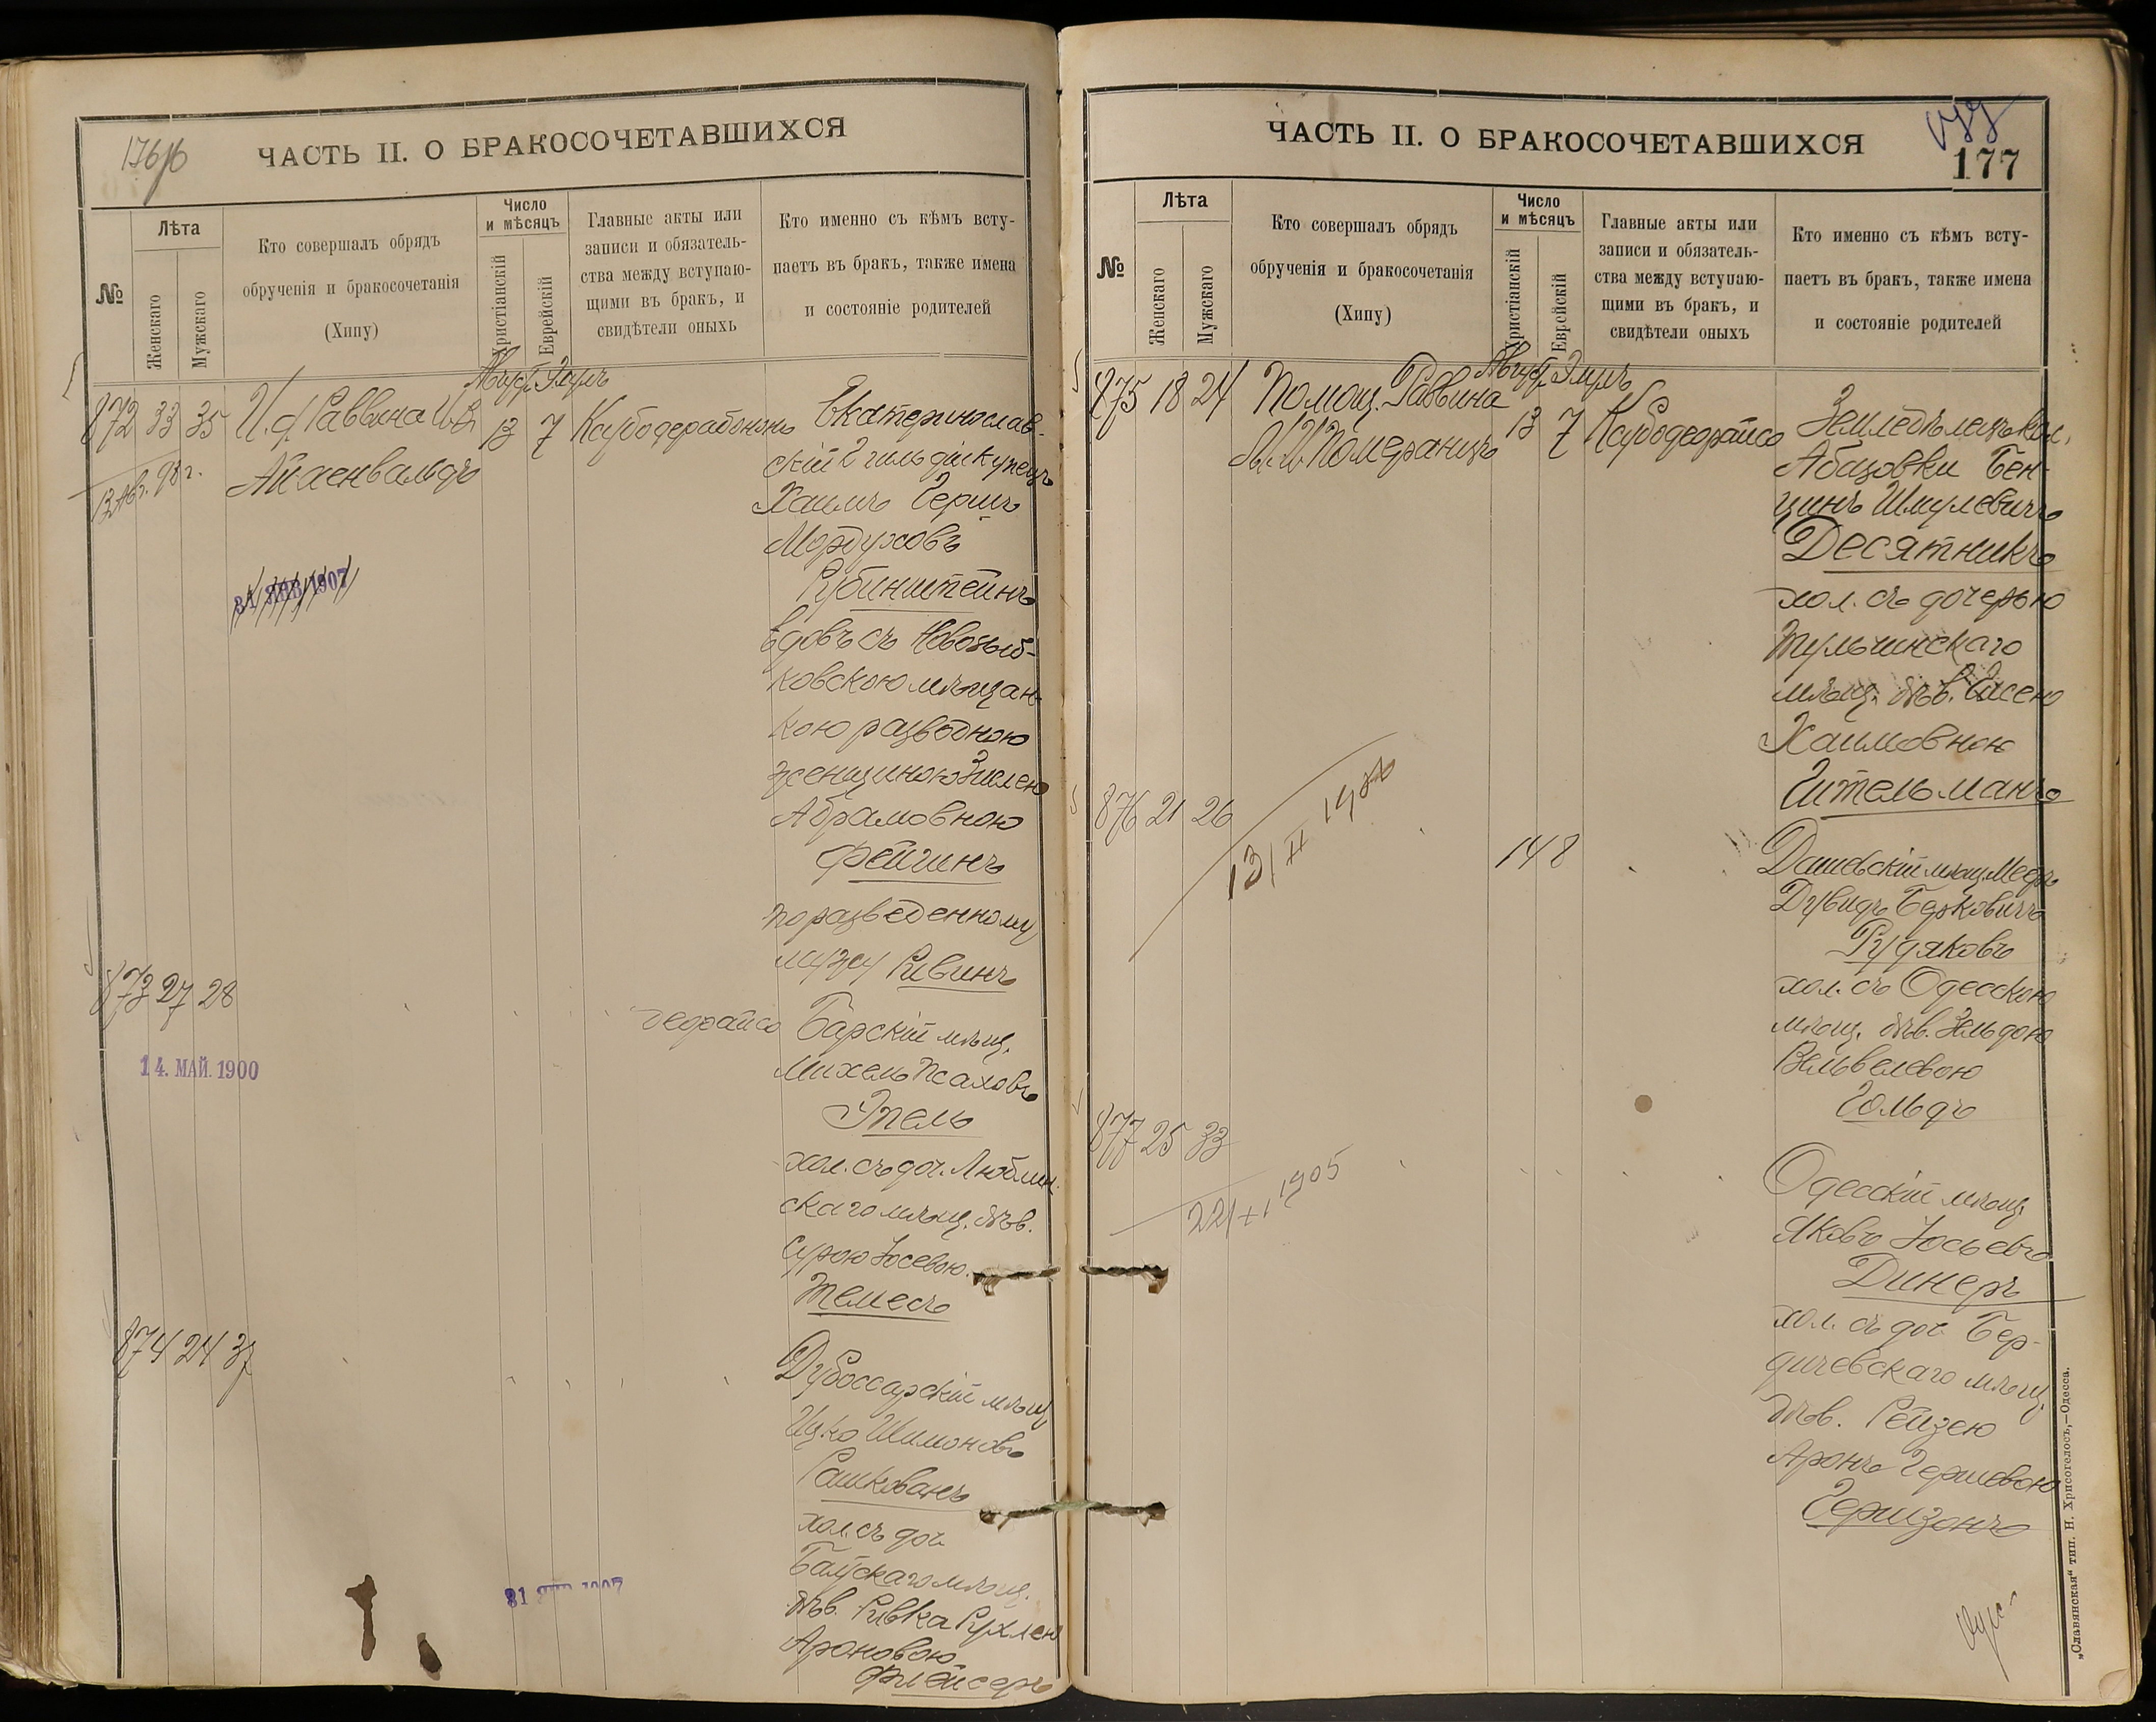 176 об
ЧАСТЬ II. О БРАКОСОЧЕТАВШИХСЯ
№
Лѣта
Женскаго
Мужскаго
Кто совершалъ обрядъ
обрученія и бракосочетанія
(Хипу)
Число
и мѣсяцъ
Христіанскій
Еврейскій
Главные акты или
записи и обязатель-
ства между вступаю-
щими въ бракъ, и
свидѣтели оныхъ
Кто именно съ кѣмъ всту-
паетъ въ бракъ, также имена
и состояніе родителей
Авгус. Элулъ
872 33 35 И. д. Раввина И. В. 13 7
Айзенвальдъ
13 Авг. 98 г.
31 ЯНВ 1907
Екатеринослав-
скій 2 гильдіи купецъ
Хаимъ Гершъ
Мордуховъ
Рубинштейнъ
вдовъ съ Новозыб-
ковскою мѣщан-
кою разводною
женщиною Зислею
Абрамовною
Фейгинъ
по разведенному
мужу Ривинъ
873 27 28
14. МАЙ. 1900
деорайсо
Барскій мѣщ.
Михель Псаховъ
Эпель
хол. съ доч. Люблин-
скаго мѣщ. дѣв.
Сурою Іосевою
Темесъ
874 24 37
Дубоссарскій мѣщ.
Ицко Шимоновъ
Рашкованъ
хол. съ доч.
Баускаго мѣщ.
дѣв. Ривка Рухлею
Ароновою
Флейсеръ
31 ЯНВ 1907
177
ЧАСТЬ II. О БРАКОСОЧЕТАВШИХСЯ
№
Лѣта
Женскаго
Мужскаго
Кто совершалъ обрядъ
обрученія и бракосочетанія
(Хипу)
Число
и мѣсяцъ
Христіанскій
Еврейскій
Главные акты или
записи и обязатель-
ства между вступаю-
щими въ бракъ, и
свидѣтели оныхъ
Кто именно съ кѣмъ всту-
паетъ въ бракъ, также имена
и состояніе родителей
Авгус. Элулъ
875 18 24 Помощ. Раввина 13 7 Касубо деорайсо
Померанцъ
Земледѣлецъ кол.
Абазовки Бен-
ціонъ Шмулевичъ
Десятникъ
хол. съ дочерью
Тульчинскаго
мѣщ. дѣв.
Хаимовною
Гительманъ
876 21 26
14 8
Дашевскій мѣщ. Мееръ
Дувидъ Берковичъ
Рудяковъ
хол. съ Одесскою
мѣщ. дѣв. Зельдою
Вельвелевою
Гольдъ
877 25 33
1905
Одесскій мѣщ.
Яковъ Іосьевъ
Динеръ
хол. съ доч. Бер-
дичевскаго мѣщ.
дѣв. Рейзею
Аронъ Гершевою
Гершзонъ
„Славянская“ тип. Н. Хрисогелосъ,—Одесса.